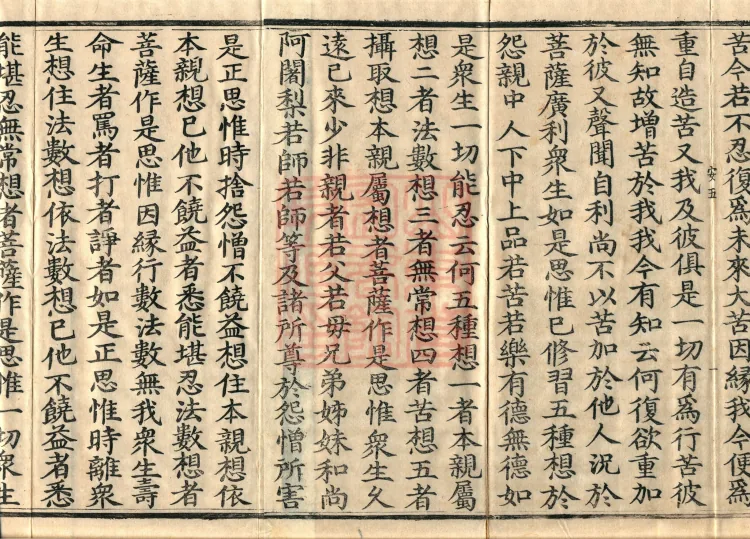 苦今若不忍復爲未來大苦因縁我今便爲
重自造苦又我及彼俱是一切有爲行苦彼
無知故增苦於我我今有知云何復欲重加
於彼又聲聞自利尚不以苦加於他人況於
菩薩廣利衆生如是思惟已修習五種想於
怨親中人下中上品若苦若樂有德無德如
是衆生一切能忍云何五種想一者本親屬
想二者法數想三者無常想四者苦想五者
攝取想本親屬想者菩薩作是思惟衆生久
遠已來少非親者若父若母兄弟姊妹和尚
阿闍梨若師若師等及諸所尊於怨憎所害
是正思惟時捨怨憎不饒益想住本親想依
本親想已他不饒益者悉能堪忍法數想者
菩薩作是思惟因縁行數法數無我衆生壽
命生者罵者打者諍者如是正思惟時離衆
生想住法數想依法數想已他不饒益者悉
能堪忍無常想者菩薩作是思惟一切衆生